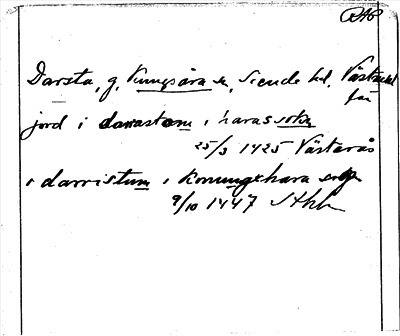 RAP
Darsta, g, Kungsåra sn, Siende hd, Västmanl
jord i darastom i haras sokn
25/3 1425 Västerås
i darristum i konungxhara sokn
9/10 1447 Sthlm